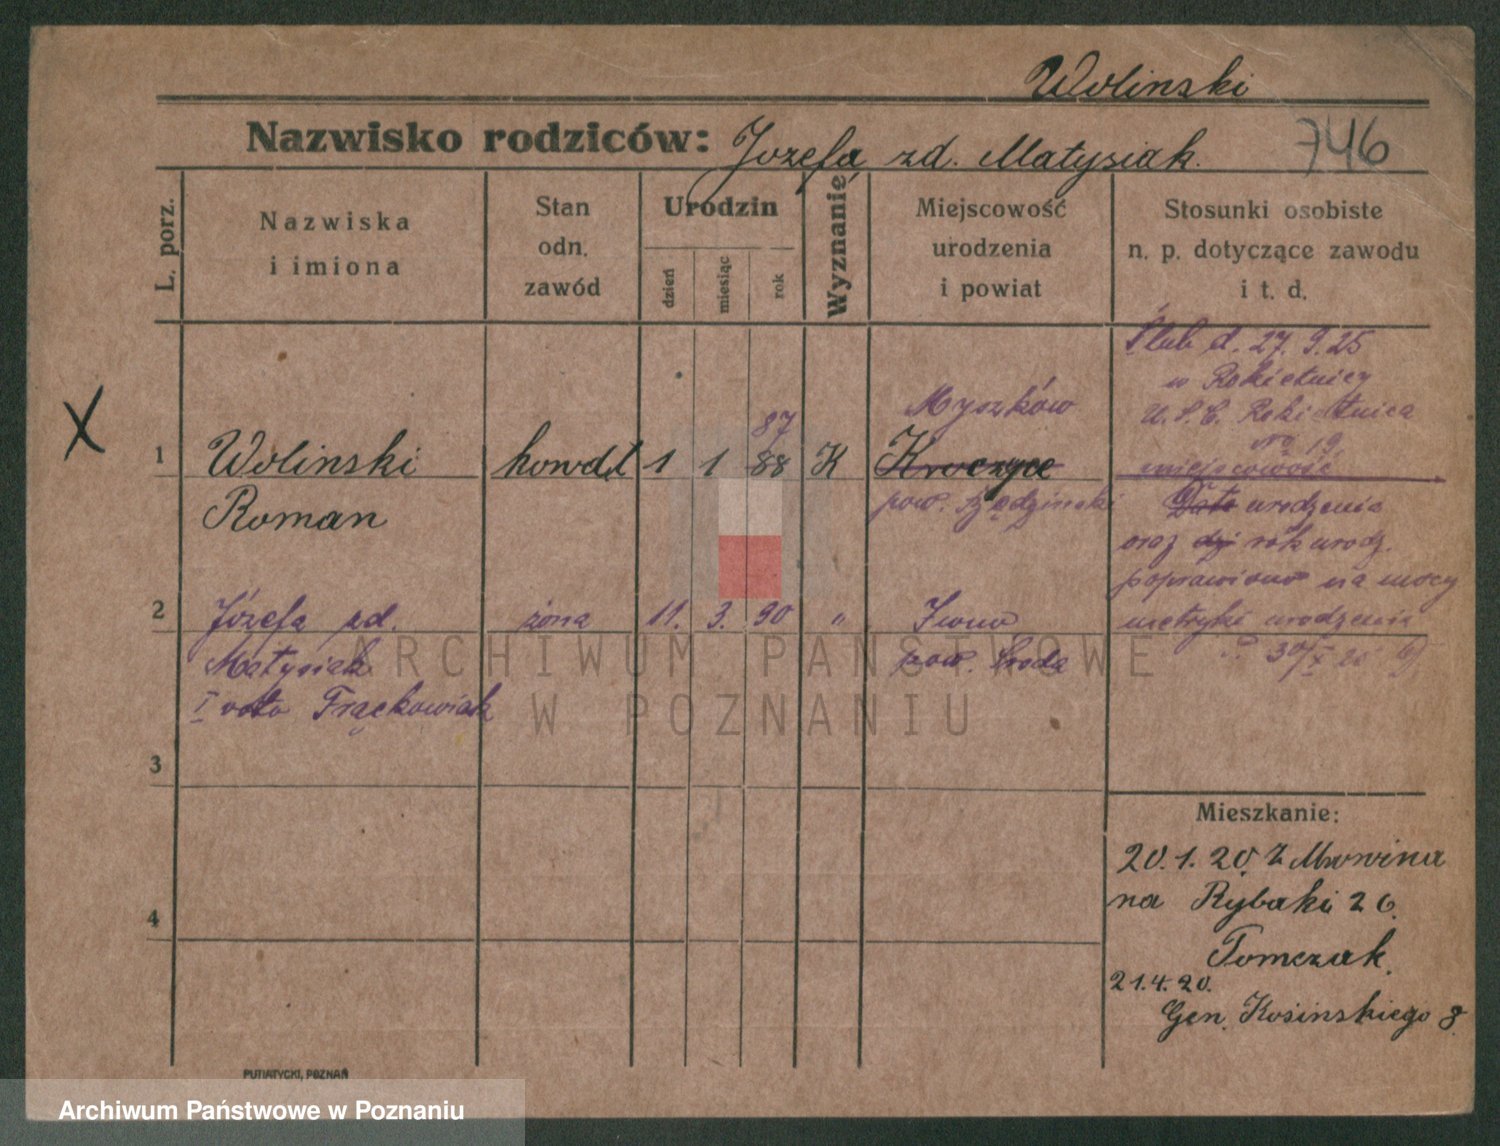 Wolinski
Nazwisko rodziców: Jozefa zd. Matysiak.
746
L. porz.
Nazwiska
i imiona
Stan
odn.
zawód
Urodzin
dzień
miesiąc
rok
Wyznanie
Miejscowość
urodzenia
i powiat
Stosunki osobiste
n. p. dotyczące zawodu
i t. d.
X
1
Wolinski
Roman
1
1
87
88
K
Myszków
Kroczyce
pow. Będzinski
Ślub d. 27. 9. 25
w Rokietnicy
U.S.C. Rokietnica
No 19
miejscowość
Data urodzenia
oraz rok urodz.
poprawiono na mocy
metryki urodzenia
2
Józefa zd.
Matysiak
I voto Frąckowiak
żona
11. 3. 90
"
Iwno
pow. Środa
30/X 26
3
4
Mieszkanie:
20.1.20. z Mrowina
na Rybaki 26.
Tomczak.
21.4.20.
Gen. Kosinskiego 8.
PUTIATYCKI, POZNAŃ
ARCHIWUM PAŃSTWOWE
W POZNANIU
Archiwum Państwowe w Poznaniu